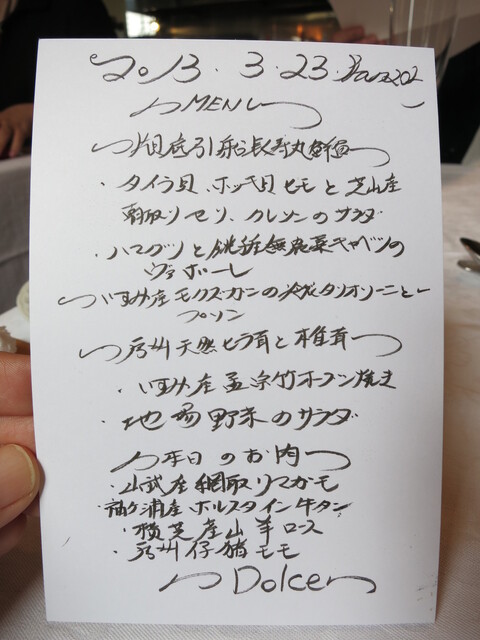 2013.3.23.
MENU
底引船長寿丸鮮魚
・タイラ貝、ホッキ貝ヒモと芝山産
朝取りセリ、クレソンのサラダ
・ハマグリと銚子無農薬キャベツの
ヴァポーレ
いすみ産モクズガニの冷製タリオリーニと
プリン
房州天然ヒラメと椎茸
・いすみ産孟宗竹オーブン焼き
・地場野菜のサラダ
本日のお肉
・山武産網取りマガモ
袖ヶ浦産ホルスタイン牛タン
・横芝産山羊ロース
・房州仔猪モモ
Dolce